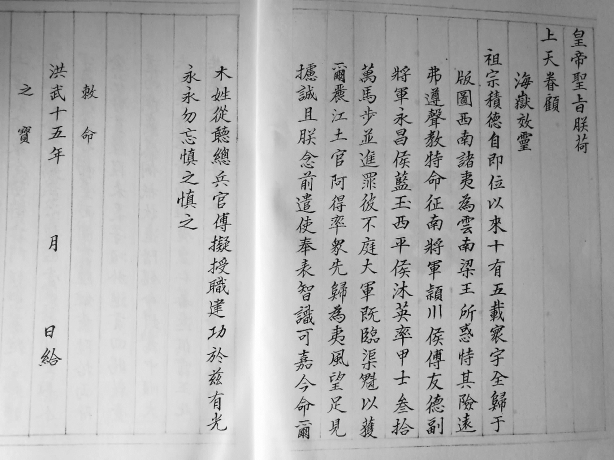 皇帝聖旨朕荷
上天眷顧
海嶽效靈
祖宗積德自即位以來十有五載寰宇全歸于
版圖西南諸夷為雲南梁王所惑恃其險遠
弗遵聲教特命征南將軍頴川侯傅友德副
將軍永昌侯藍玉西平侯沐英率甲士叁拾
萬馬步並進罪彼不庭大軍既臨渠魁以獲
爾麗江土官阿得率衆先歸為夷風望足見
攄誠且朕念前遣使奉表智識可嘉今命爾
木姓從聽總兵官傅擬授職建功於兹有光
永永勿忘慎之慎之
敕命
洪武十五年 月 日給
之寶